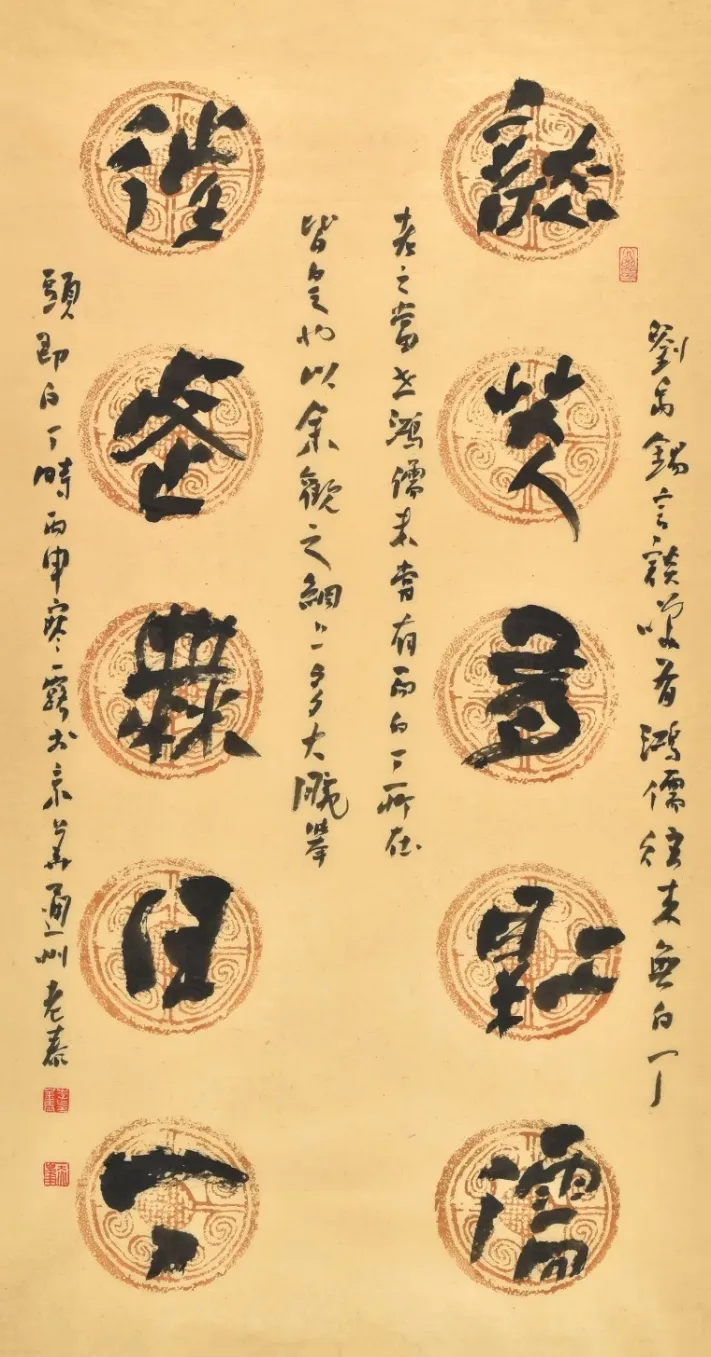 談笑有鴻儒
往來無白丁
劉禹錫言談笑有鴻儒往來無白丁
考之當世鴻儒未嘗有而白丁所在
皆是也以余觀之網上多大腕舉
頭即白丁時丙申寒露於京華通州老泰